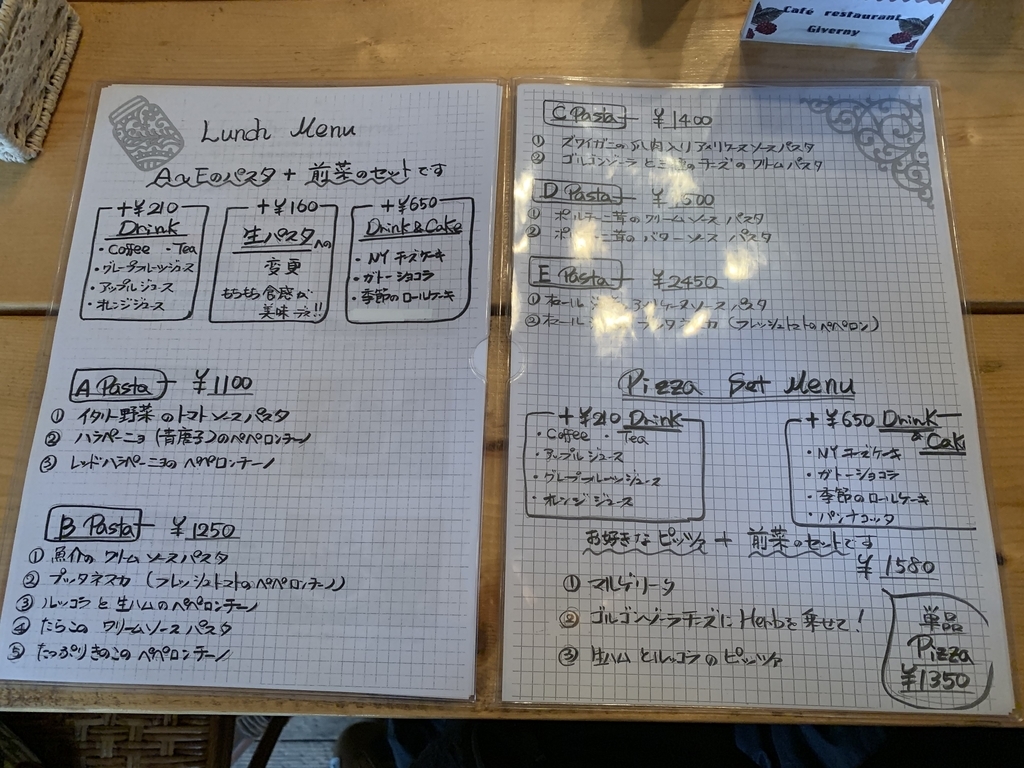 Café restaurant
Giverny
Lunch Menu
A~Eのパスタ + 前菜のセットです
+¥210
Drink
・Coffee ・Tea
・グレープフルーツジュース
・アップルジュース
・オレンジジュース
+¥160
生パスタへの
変更
もちもち食感が
美味デス!!
+¥650
Drink & Cake
・NYチーズケーキ
・ガトーショコラ
・季節のロールケーキ
A Pasta ¥1100
① イタリア野菜のトマトソースパスタ
② ハラペーニョ(青唐子)のペペロンチーノ
③ レッドハラペーニョのペペロンチーノ
B Pasta ¥1250
① 魚介のクリームソースパスタ
② プッタネスカ (フレッシュトマトのペペロンチーノ)
③ ルッコラと生ハムのペペロンチーノ
④ たらこのクリームソースパスタ
⑤ たっぷりきのこのペペロンチーノ
C Pasta ¥1400
① ズワイガニの爪肉入りアメリケーヌソースパスタ
② ゴルゴンゾーラと のチーズのクリームパスタ
D Pasta ¥ 600
① ポルチーニ茸のクリームソースパスタ
② ポルチーニ茸のバターソースパスタ
E Pasta ¥2450
① オマール ソースパスタ
② オマール (フレッシュトマトのペペロン)
Pizza Set Menu
+¥210 Drink
・Coffee ・Tea
・アップルジュース
・グレープフルーツジュース
・オレンジジュース
+¥650 Drink
& Cake
・NYチーズケーキ
・ガトーショコラ
・季節のロールケーキ
・パンナコッタ
お好きなピッツァ + 前菜のセットです
¥1580
① マルゲリータ
② ゴルゴンゾーラチーズにHerbを乗せて!
③ 生ハムとルッコラのピッツァ
単品
Pizza
¥1350